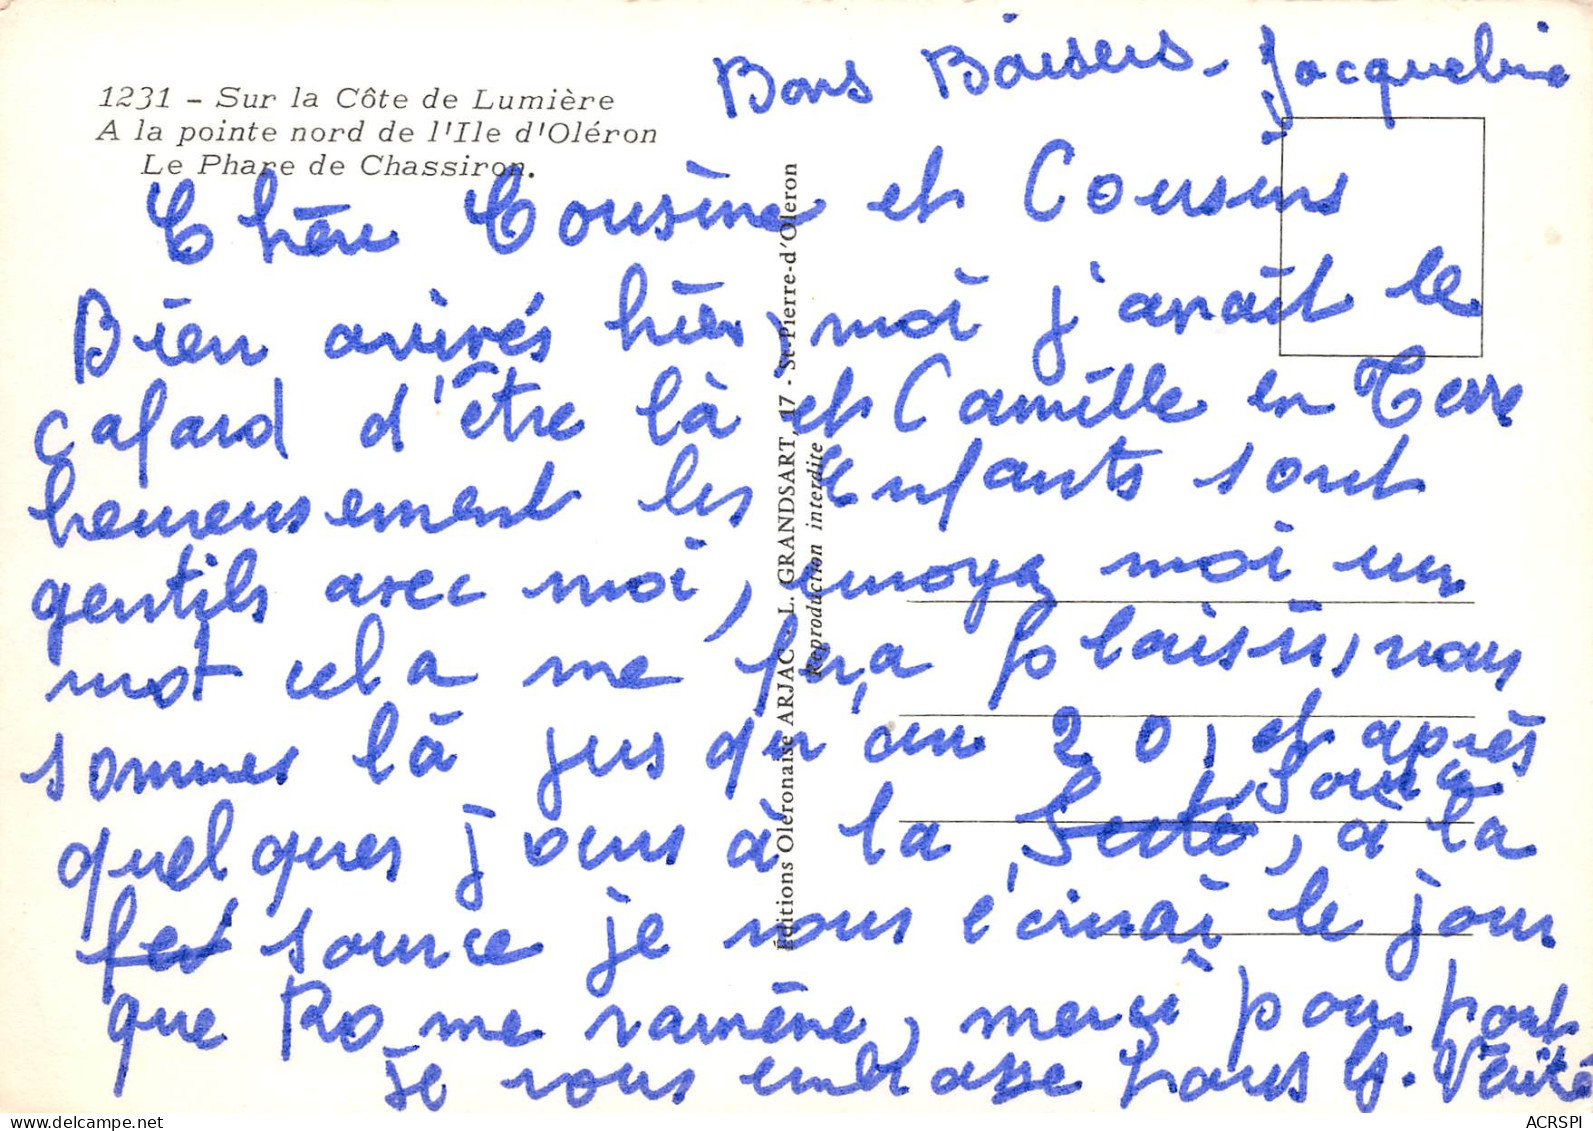 Bons Baisers - Jacqueline
1231 - Sur la Côte de Lumière
A la pointe nord de l'Ile d'Oléron
Le Phare de Chassiron.
Chère Cousine et Cousins
Bien arivés hier, moi j'avait le
cafard d'être là et Camille en Terre
heureusement les Enfants sont
gentils avec moi, envoye moi un
mot cela me fera plaisir, nous
sommes là jus qu'au 20, et après
quelques jours à la Source, à la
source je vous écrirai le jour
que Ro me ramène, merci pour tout
Je vous embrasse tous
Éditions Oléronaise ARJAC - L. GRANDSART, 17 - St-Pierre-d'Oleron
Reproduction interdite
ACRSPI